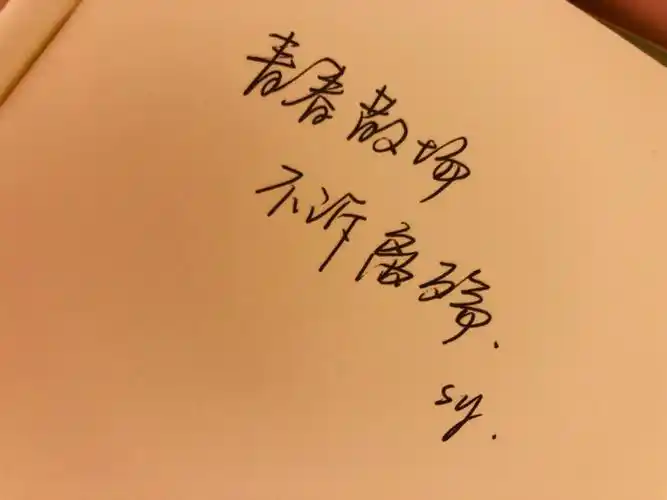 青春散场
不诉离殇.
sy.